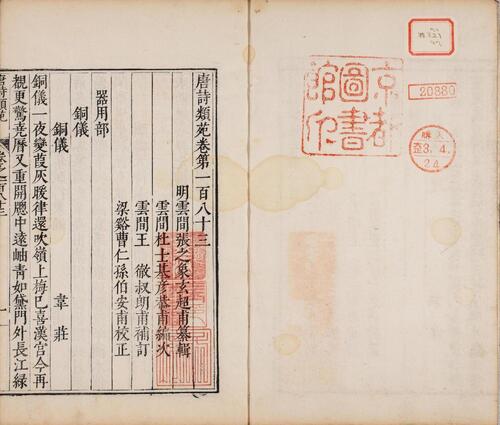 京都
圖書
館印
20880
3.4.
24
唐詩類苑卷第一百八十三
明雲間張之象玄超甫纂輯
雲間杜士基彥恭甫編次
雲間王 徹叔朗甫補訂
梁谿曹仁孫伯安甫校正
器用部
銅儀
銅儀 韋莊
銅儀一夜變葭灰暖律還吹嶺上梅巳喜漢官今再
覩更驚堯曆又重開牕中遠岫青如黛門外長江緑
唐詩類苑 卷之一百八十三 一